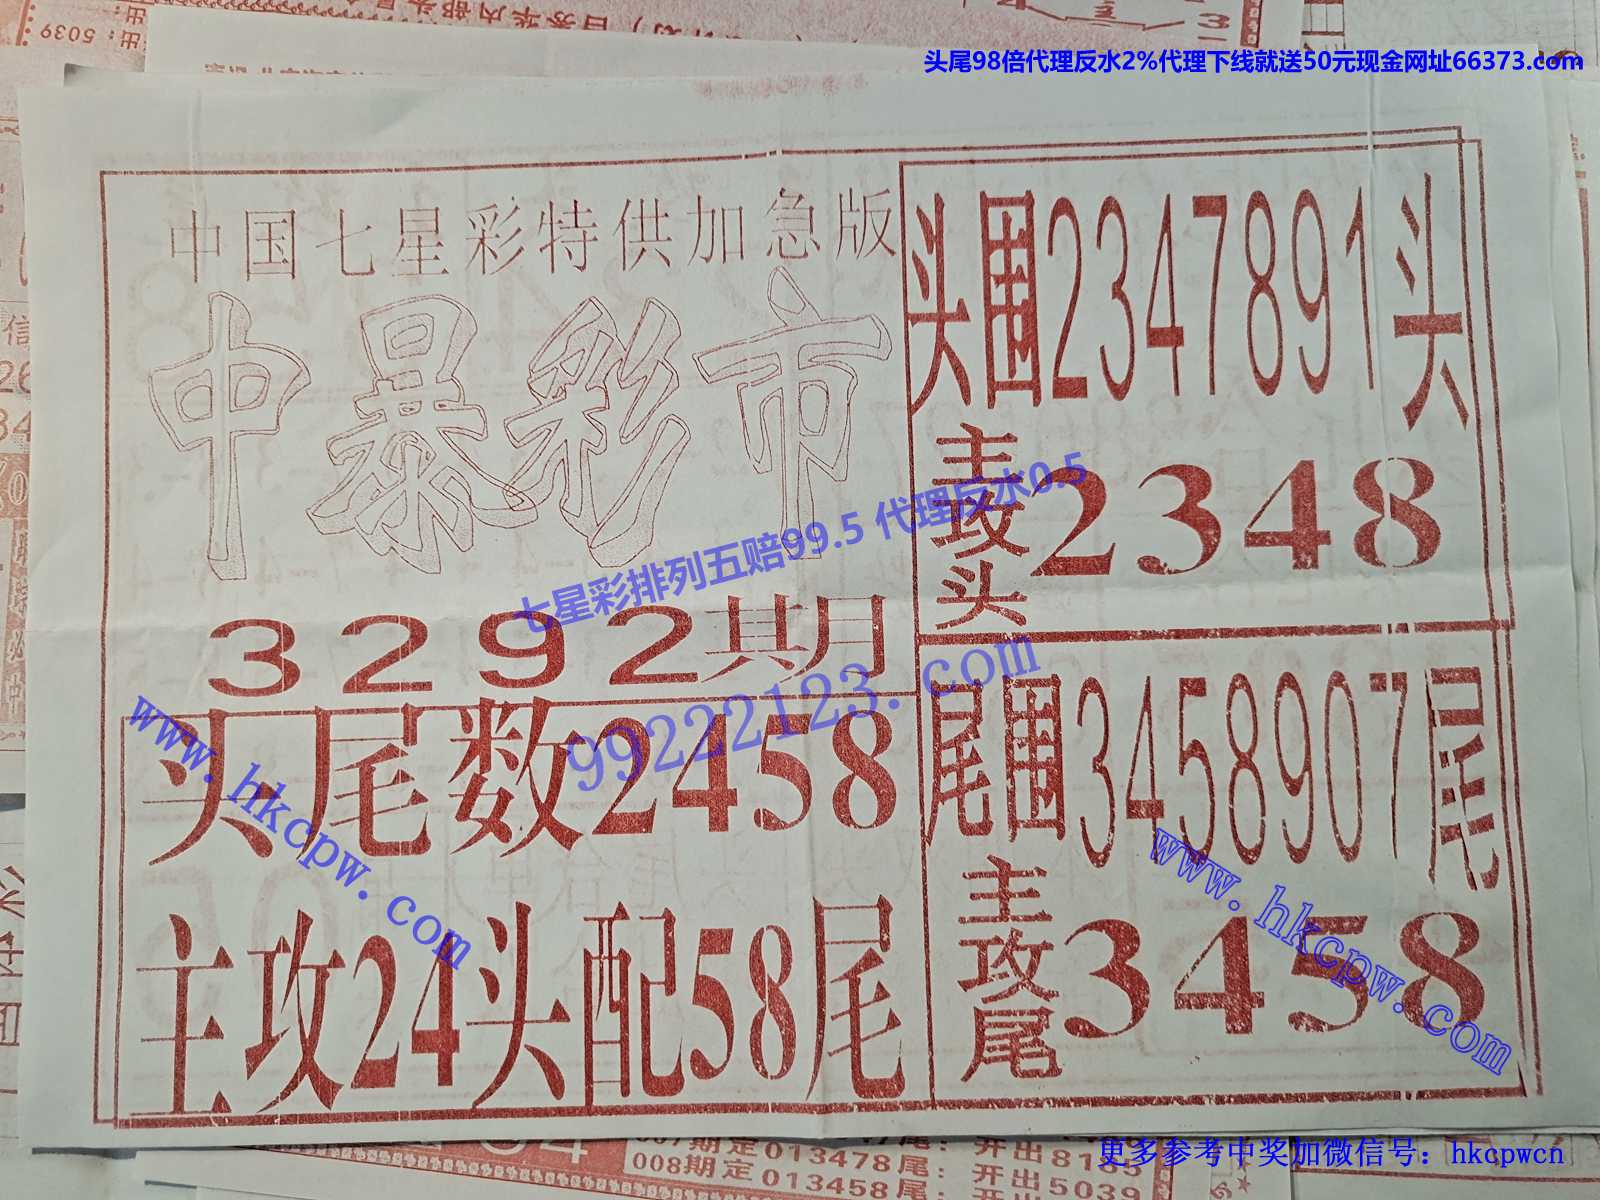 头尾98倍代理反水2%代理下线就送50元现金网址66373.com
出：5039
中国七星彩特供加急版
中暴彩市
3292共月
头尾数2458
主攻24头配58尾
头围2347891头
主攻头2348
尾围3458907尾
主攻尾3458
七星彩排列五赔99.5 代理反水0.5
99222123.com
www.hkcpw.com
www.hkcpw.com
008期定013458尾：开出5039
更多参考中奖加微信号：hkcpwcn